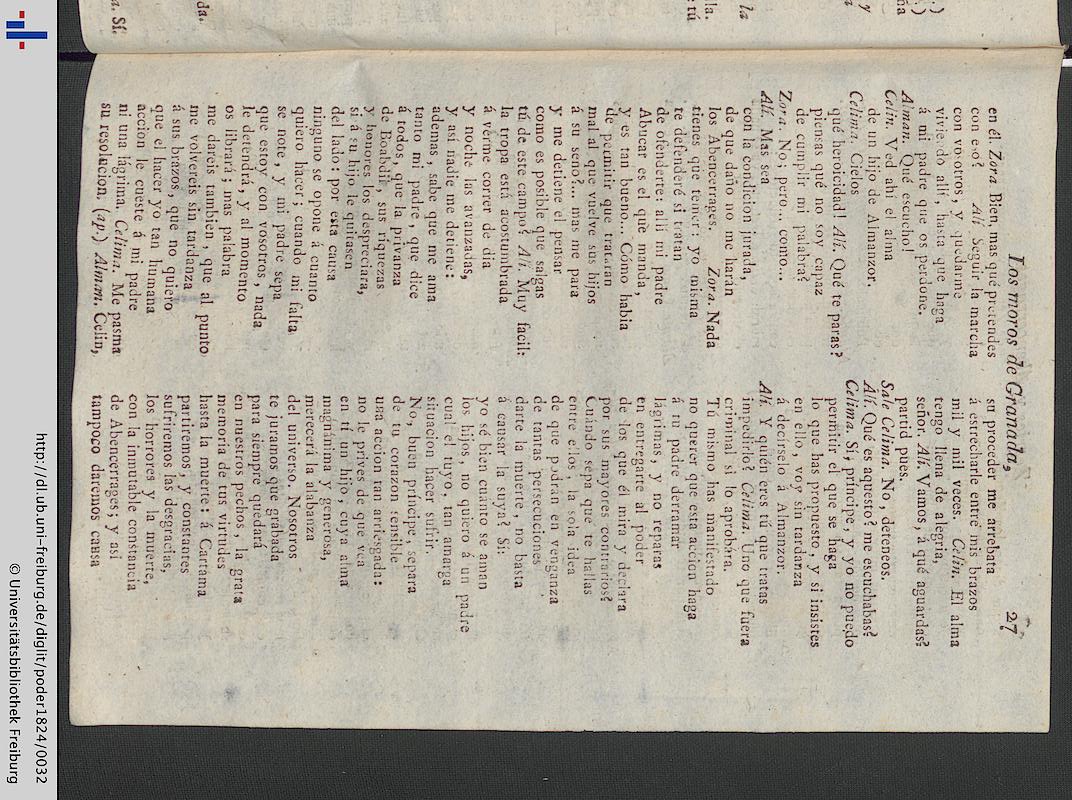 Los moros de Granada,
27
en él. Zora Bien, mas qué pretendes
con eso? Alí. Seguir la marcha
con vosotros, y quedarme
viviendo allí, hasta que haga
á mi padre que os perdone.
Alman. Qué escucho!
Celin. Ved ahí el alma
de un hijo de Almanzor.
Celima. Cielos
qué heroicidad! Alí. Qué te paras?
piensas qué no soy capaz
de cumplir mi palabra?
Zora. No; pero... como...
Alí. Mas sea
con la condicion jurada,
de que daño no me harán
los Abencerrages. Zora. Nada
tienes que temer: yo misma
te defenderé si tratan
de ofenderte: allí mi padre
Abucar es el què manda,
y es tan bueno... Cómo habia
de permitir que trataran
mal al que vuelve sus hijos
á su seno?... mas me para
y me detiene el pensar
como es posible que salgas
tú de este campo? Alí. Muy facil:
la tropa está acostumbrada
á verme correr de dia
y noche las avanzadas,
y así nadie me detiene:
ademas, sabe que me ama
tanto mi padre, que dice
á todos, que la privanza
de Boabdil, sus riquezas
y honores los despreciara,
si á su hijo le quitasen
del lado: por esta causa
ninguno se opone á cuanto
quiero hacer; cuando mi falta
se note, y mi padre sepa
que estoy con vosotros, nada
le detendrá, y al momento
os librará: mas palabra
me dareis tambien, que al punto
me volvereis sin tardanza
á sus brazos, que no quiero
que el hacer yo tan humana
accion le cueste á mi padre
ni una lágrima. Celima. Me pasma
su resolucion. (ap.) Almam. Celin,
su proceder me arrobata
á estrecharle entre mis brazos
mil y mil veces. Celin. El alma
tengo llena de alegria,
señor. Alí. Vamos, á qué aguardas?
partid pues.
Sale Celima. No, deteneos.
Alí. Qué es aquesto? me escuchabas?
Celima. Sí, príncipe, y yo no puedo
permitir el que se haga
lo que has propuesto, y si insistes
en ello, voy sin tardanza
á decirselo á Almanzor.
Alí. Y quién eres tú que tratas
impedirlo? Celima. Uno que fuera
criminal si lo aprobára.
Tú mismo has manifestado
no querer que esta accion haga
á tu padre derramar
lagrimas, y no reparas
en entregarte al poder
de los que él mira y declara
por sus mayores contrarios?
Cuando sepa que te hallas
entre ellos, la sola idea
de que podran en venganza
de tantas persecuciones
darte la muerte, no basta
á causar la suya? Sí:
yo sé bien cuanto se aman
los hijos, no quiero á un padre
cual el tuyo, tan amarga
situacion hacer sufrir.
No, buen príncipe, separa
de tu corazon sensible
una accion tan arriesgada:
no le prives de que vea
en tí un hijo, cuya alma
magnánima y generosa,
merecerá la alabanza
del universo. Nosotros
te juramos que grabada
para siempre quedará
en nuestros pechos, la grata
memoria de tus virtudes.
hasta la muerte: á Cartama
partiremos, y constantes
sufriremos las desgracias,
los horrores y la muerte,
con la inmutable constancia
de Abencerrages; y asi
tampoco daremos causa
la
la.
tú
da.
a. Sí.
http://dl.ub.uni-freiburg.de/diglit/poder1824/0032
© Universitätsbibliothek Freiburg